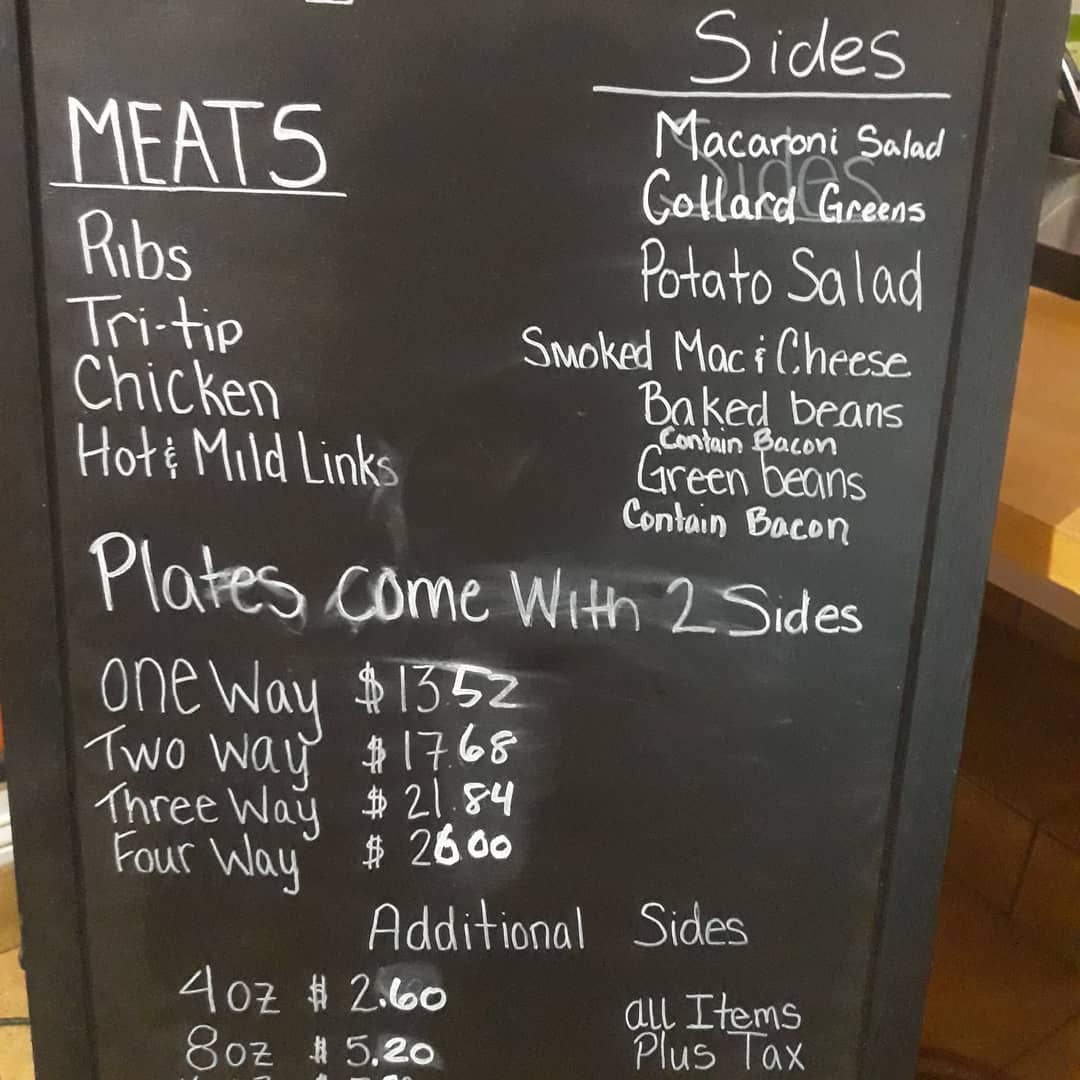 MEATS
Ribs
Tri-tip
Chicken
Hot & Mild Links
Sides
Sides
Macaroni Salad
Collard Greens
Potato Salad
Smoked Mac & Cheese
Baked beans
Contain Bacon
Green beans
Contain Bacon
Plates come With 2 Sides
one Way $13.52
Two Way $17.68
Three Way $21.84
Four Way $26.00
Additional Sides
4oz $2.60
8oz $5.20
all Items
Plus Tax